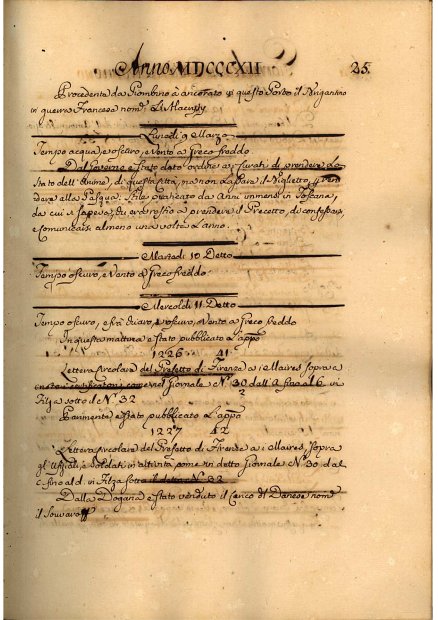 Anno MDCCCXII 25
Procedente da Piombino à ancorato in questo Porto il Brigantino
in guerra Francese nom.
Lunedì 9 Marzo
Tempo acqua e oscuro, e Vento a Greco freddo
Dal Governo è stato dato ordine a i Curati di prendere lo
Stato dell'Anime, di questa Città, ma non la Para il Biglietto,
dere alla Pasqua. Stile praticato da Anni immemo. in Toscana,
da cui si sapeva, chi era
e Comunicarsi almeno una volta l'anno.
Martedì 10 Detto
Tempo oscuro, e Vento a Greco freddo
Mercoledì 11 Detto
Tempo oscuro, e frà chiaro, e oscuro, e Vento a Greco freddo
In questa mattina è stato pubblicato l'appo
1226 41
Lettera Circolare del Prefetto di Firenze a i Maires sopra a
come nel Giornale N.º 30 dall A fino al 6 in
Filza sotto il N.º 32
Parimente è stato pubblicato l'appo
1227 42
Lettera Circolare del Prefetto di Firenze a i Maires, sopra
gl'Uffiziali, e Soldati in attività come in detto Giornale N.º 30, dal
C. fino al d. in Filza sotto il detto N.º 32
Dalla Dogana è stato venduto il Carico del Danese nom.
il